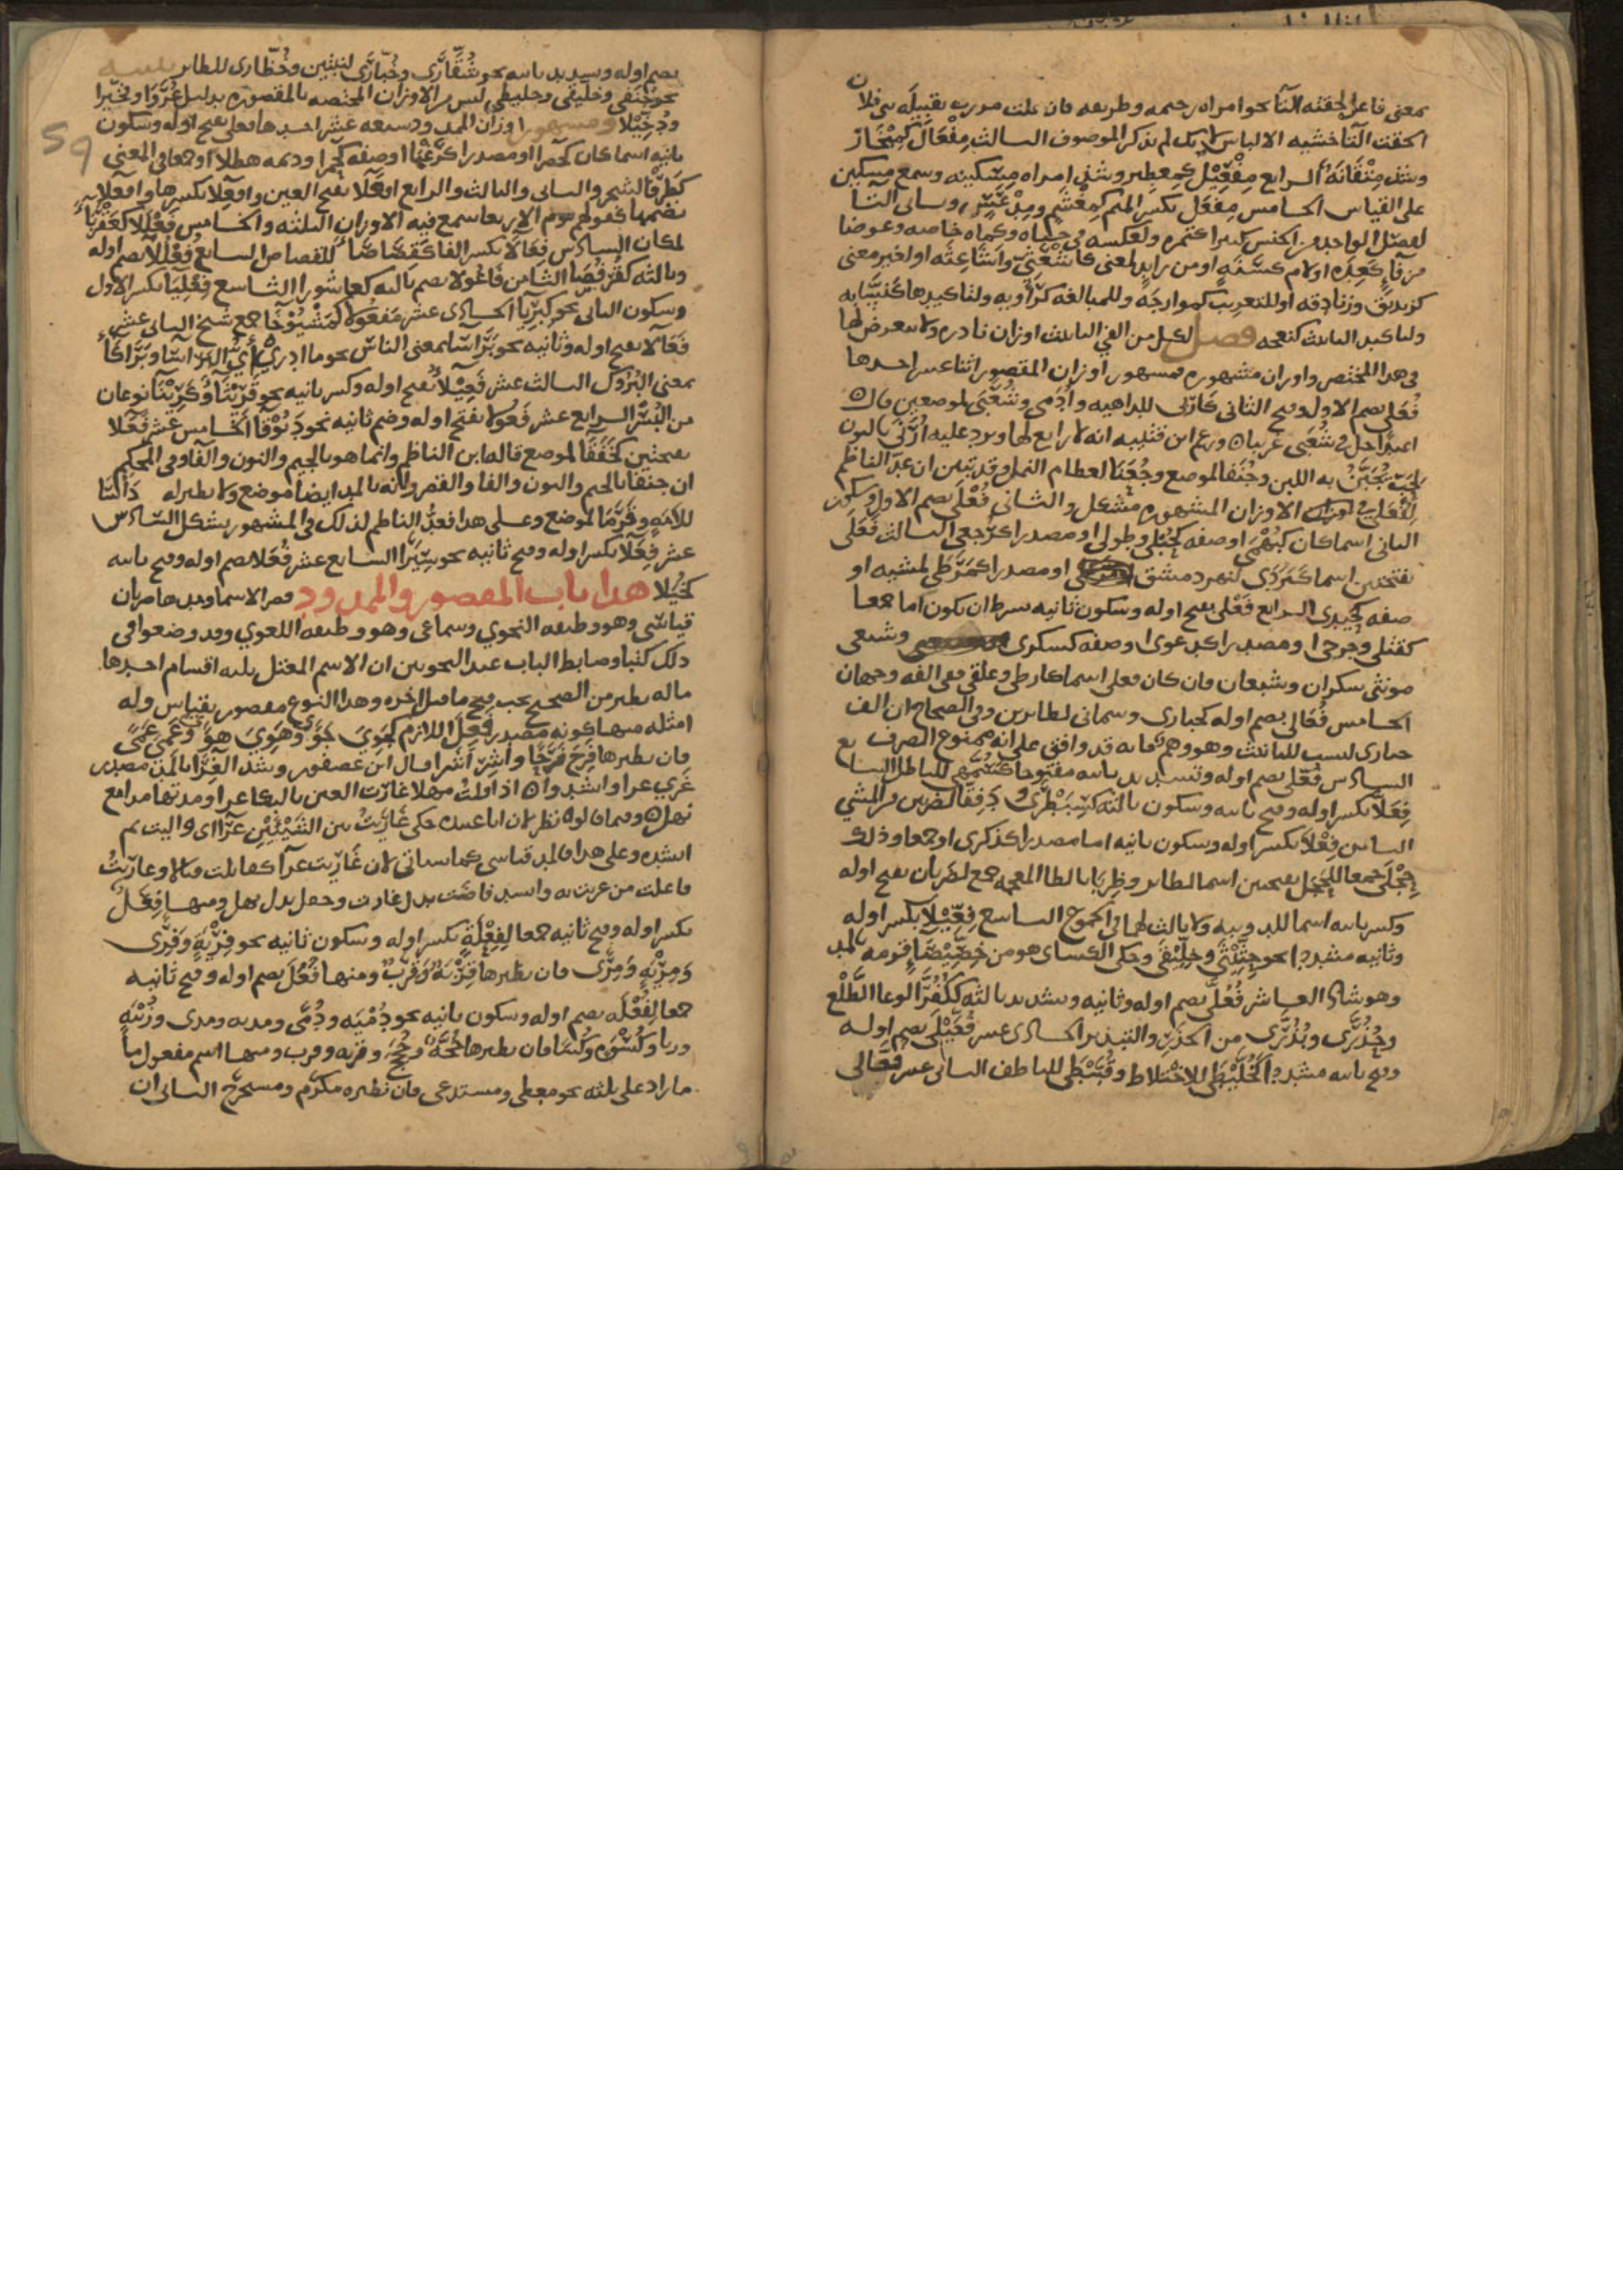 بمعنى فاعل لحقته التا نحو امراه رحيمه وظريفه فان قلت مررت بقتيله بني فلان
الحقت التا خشيه الالباس لانك لم تذكر الموصوف الثالث مِفْعَال كمِنْحَار
وشذ مِيْقَانَة الرابع مِفْعِيْل كمِعطِير وشذ امراه مِسْكينه وسمع مسكين
على القياس الخامس مِفْعَل بكسر الميم كمِغْشَم ومِدْعَس وتاتي التا
لفصل الواحد من الجنس كثيرا كتمره ولعكسه في جباه وكماه خاصه وعوضا
من فا كعِدَه او لام كسَنَةٍ او من زايد لمعنى كاشْعَثِيّ واشَاعِثَه او لغير معنى
كزنديق وزنادقه او للتعريب كموازجَه وللمبالغه كراويه ولتاكيدها كنسّابه
ولتاكيد التانيث كنعجه فصل لكل من الفي التانيث اوزان نادره ولا نتعرض لها
في هذا المختصر واوزان مشهوره فمشهور اوزان المقصور اثنا عشر احدها
فُعَلى بضم الاول وفتح الثاني كارَبى للداهيه وادَمى وشُعَبَى لموضعين قال
اعبدا حل في شُعَبى غريبا وزعم ابن قتيبه انه لا رابع لها ويرد عليه ارَنى بالنون
لحَبّ يُجَبَّنُ به اللبن وجُنَفا لموضع وجُعَبَا لعظام النمل وقد تبين ان عدّ الناظم
لِفُعَلى في الاوزان المشهوره مشكل والثاني فُعْلَى بضم الاول وسكون
الثاني اسما كان كبُهْمَى او صفه كحُبْلى وطولى او مصدرا كرُجعى الثالث فَعَلَى
بفتحتين اسما كبَرَدَى لنهر دمشق او مصدرا كمَرَطَى لمشيه او
صفه كحَيَدى الرابع فَعْلى بفتح اوله وسكون ثانيه بشرط ان يكون اما جمعا
كقتلى وجرحى او مصدرا كدعوى او صفه كسكرى وشبعى
مونثى سكران وشبعان فان كان فعلى اسما كارطى وعلقى ففي الفه وجهان
الخامس فُعَالى بضم اوله كحبارى وسمانى لطايرين وفي الصحاح ان الف
حبارى ليست للتانيث وهو وهم فانه قد وافق على انه ممنوع الصرف
السادس فُعَّلى بضم اوله وتشديد ثانيه مفتوحا كسُمَّهى للباطل السابع
فِعَلَّى بكسر اوله وفتح ثانيه وسكون ثالثه كسِبَطْرَى ودِفَقَّى لضربين من المشي
الثامن فِعْلَى بكسر اوله وسكون ثانيه اما مصدرا كذكرى او جمعا وذلك
حِجْلَى جمعا للحَجَل بفتحتين اسما لطاير وظِرْبَا بالظا المعجمه جمع لظَرِبَان بفتح اوله
وكسر ثانيه اسما للدويبه ولا ثالث لهما في الجموع التاسع فِعِّيْلى بكسر اوله
وثانيه مشددا نحو حِثِّيْثَى وخِلِّيْفَى وحكى الكساى هو من خِصِّيْصَاءِ قومه بالمد
وهو شاذ العاشر فُعُلَّى بضم اوله وثانيه وتشديد ثالثه ككُفُرَّى لوعا الطَّلْع
وحُذُرَّى وبُذُرَّى من الحذر والتبذير الحادى عشر فُعَّيْلى بضم اوله
وفتح ثانيه مشددا كخُلَّيْطَى للاختلاط وقُبَّيْطَى للناطف الثانى عشر فُعَّالى
59
بضم اوله وتشديد ثانيه نحو شُقَّارَى وخُبَّازَى لنبتين وخُضَّارى للطاير تنبيه
نحو جُنَفى وخلّيفى وخليطى ليس من الاوزان المختصه بالمقصوره بدليل عُرَوَا وفخّيرا
ودُخَّيْلا ومشهور اوزان الممدود سبعه عشر احدها فعلى بفتح اوله وسكون
ثانيه اسما كان كصحرا او مصدرا كرَغْبَا او صفه كحَمرا وديمه هطلا او جمعا في المعنى
كطَرْفَا لشجر والثانى والثالث والرابع افعَلا بفتح العين وافعِلا بكسرها وافعُلا
بضمها كقولهم يوم الاربعا سمع فيه الاوزان الثلثه والخامس فَعْلَلا كعَقْرَبَاء
لمكان السادس فِعَالا بكسر الفا كقِصَاصَاء للقصاص السابع فُعْلُلا بضم اوله
وثالثه كقُرفُصَا الثامن فَاعُولا بضم ثالثه كعاشورا التاسع فِعْلِيَا بكسر الاول
وسكون الثانى نحو كِبْرِيَا الحادى عشر مَفعُولا كمَشْيُوْخَا جمع شيخ الثانى عشر
فَعَالا بفتح اوله وثانيه نحو بَرَاسَا بمعنى الناس نحو ما ادرى اي البَرَاسَا وبَرَاكَا
بمعنى البُرُوك الثالث عشر فَعِيْلا بفتح اوله وكسر ثانيه نحو قَرِيْثَا وكَرِيْثَا نوعان
من البُسْر الرابع عشر فَعُولا بفتح اوله وضم ثانيه نحو دَبُوْقَا الخامس عشر فَعَلا
بفتحتين كخَفَقَا لموضع قاله ابن الناظم وانما هو بالجيم والنون والفا وفي المحكم
ان جنفا بالجيم والنون والفا والقصر وانه بالمد ايضا موضع ولا نظير له دَاثَا
للامَهِ وقَرَمَا لموضع وعلى هذا فعدُّ الناظم لذلك في المشهور يشكل السادس
عشر فِعَلا بكسر اوله وفتح ثانيه نحو سِيَرَا السابع عشر فُعَلا بضم اوله وفتح ثانيه
كخُيَلا هذا باب المقصور والممدود قصر الاسما ومدها ضربان
قياسى وهو وظيفه النحوي وسماعى وهو وظيفه اللغوي وقد وضعوا في
ذلك كتبا وضابط الباب عند النحويين ان الاسم المعتل ثلثه اقسام احدها
ما له نظير من الصحيح يجب فتح ما قبل اخره وهذا النوع مقصور بقياس وله
امثله منها كونه مصدر فَعِلَ اللازم كجَوِيَ جَوًى وهَوِيَ هوًى وعَمِيَ عمًى
فان نظيرها فرح فَرَحًا واشِر اشَرا قال ابن عصفور وشذ الغِرَا بالمد مصدر
غَرِي غرا وانشدوا اذا قلتُ مهلا غارَت العين بالبكا غرا ومدتها مدامع
نهل وفيما قالوه نظر لان ابا عبيد حكى غَارَيْتُ بين الشَيْئَيْنِ غِرَا اى واليت ثم
انشده وعلى هذا فالمد قياسى كما سياتى لان غَارَيْت غرا كقاتلت قتالا وغارَيْتُ
فاعلت من غريت به وانشد فاضَت بدل غارت وحفل بدل نهل ومنها فِعَلٌ
بكسر اوله وفتح ثانيه جمعا لِفِعْلَةٍ بكسر اوله وسكون ثانيه نحو فِرْيَةٍ وفِرًى
وَمِرْيَةٍ وَمِرًى فان نظيرها قِرْبَةٌ وَقِرَبٌ ومنها فُعَلٌ بضم اوله وفتح ثانيه
جمعا لِفُعْلَه بضم اوله وسكون ثانيه نحو دُمْيَه ودُمًى ومديه ومدى وزُبْيَهٍ
وزبا وكُسْوَه وكُسَا فان نظيرها حُجَّةٌ وحُجَج وقربه وقرب ومنها اسم مفعول ما
ما زاد على ثلثه نحو معطى ومستدعى فان نظيره مكرَّم ومستخرَج الثانى ان